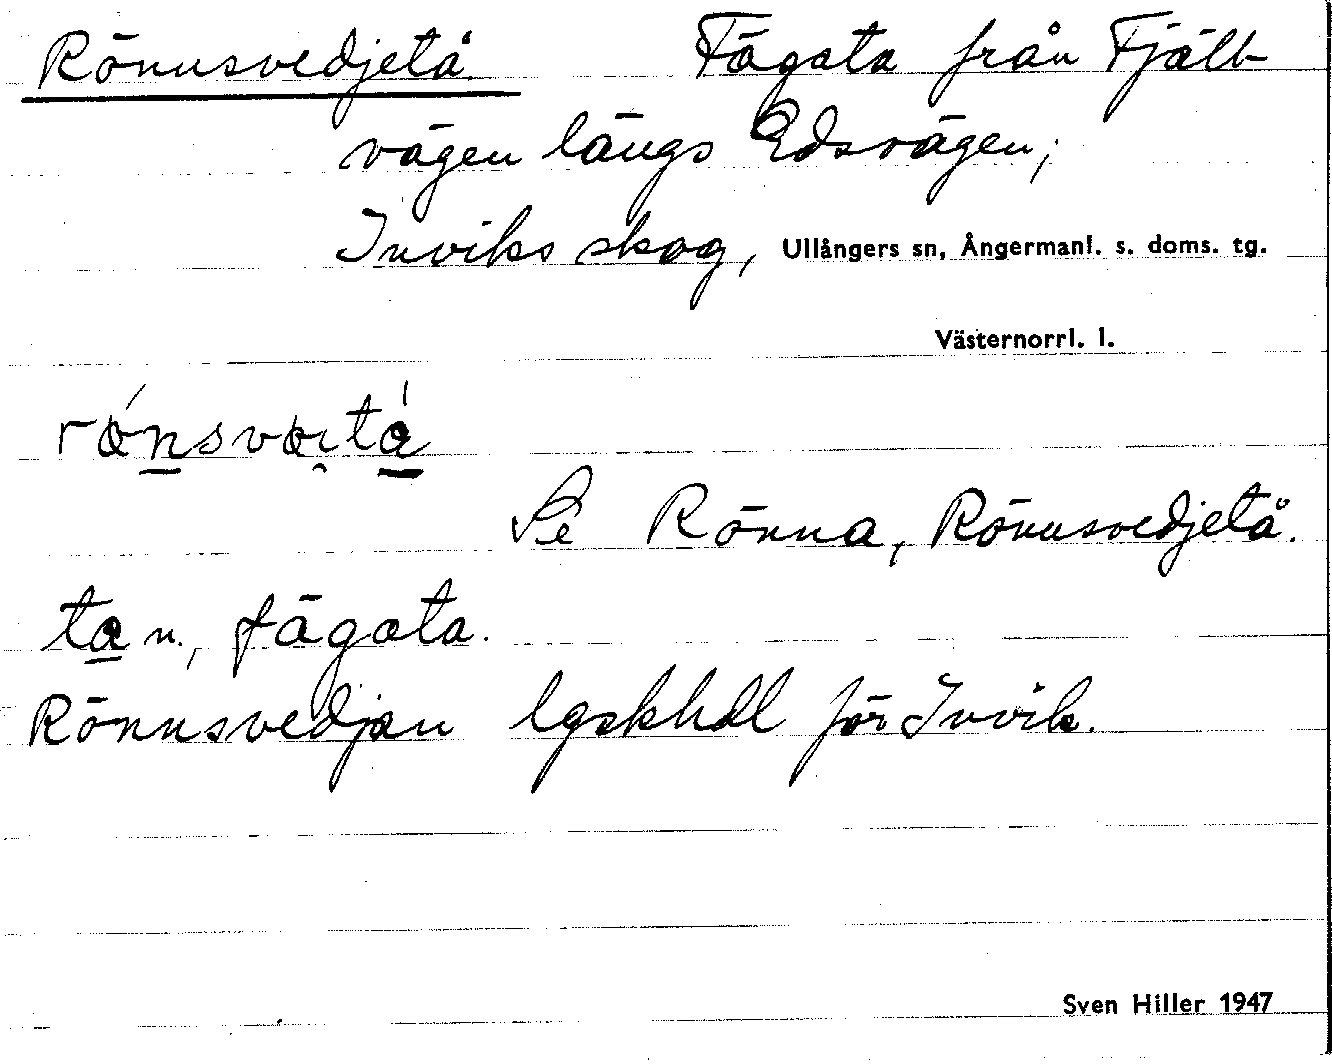 Rönnsvedjetå Fägata från Fjäll-
vägen längs Edsvägen;
Inviks skog, Ullångers sn, Ångermanl. s. doms. tg.
Västernorrl. l.
Se Rönna, Rönnsvedjetå.
n., fägata.
Rönnsvedjan lgskhdl för Invik.
Sven Hiller 1947